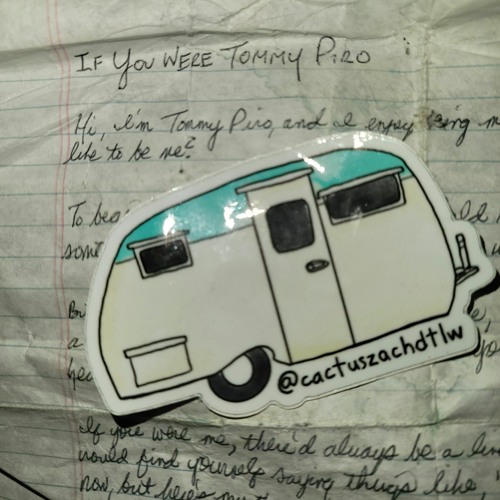 IF YOU WERE TOMMY PIRO
Hi, I'm Tommy Piro, and I enjoy being m
like to be me?
To bea
som
a
hea
@cactuszachdtlw
If you were me, there'd always be a lin
would find yourself saying things like
now, but here's my